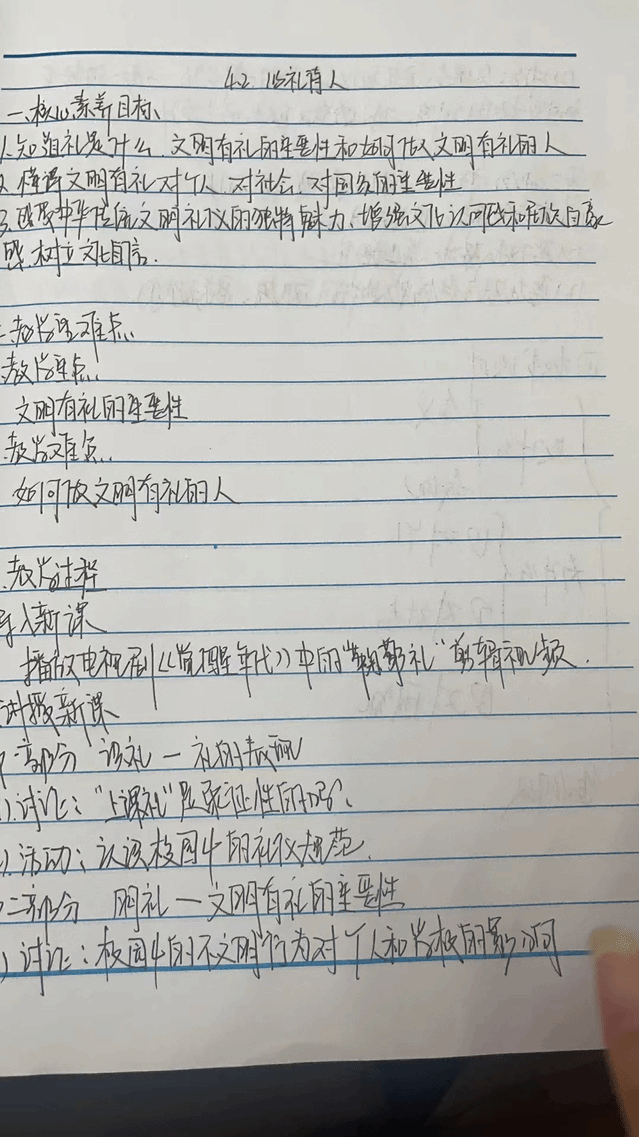 4.2 以礼待人
一、核心素养目标
1.知道礼是什么,文明有礼的重要性和如何做文明有礼的人
2.懂得文明有礼对个人、对社会、对国家的重要性
3.感受中华传统文明礼仪的独特魅力、增强文化认同感和民族自豪
感、树立文化自信.
二.教学重难点.
教学重点.
文明有礼的重要性
教学难点.
如何做文明有礼的人
.教学过程
导入新课
播放电视剧《觉醒年代》中的"鞠躬礼"剪辑视频.
讲授新课
一部分 识礼一礼的表现
)讨论:"上课礼"是象征性的吗?
).活动:认识校园中的礼仪规范.
二部分 明礼一文明有礼的重要性
)讨论:校园中的不文明行为对个人和学校的影响